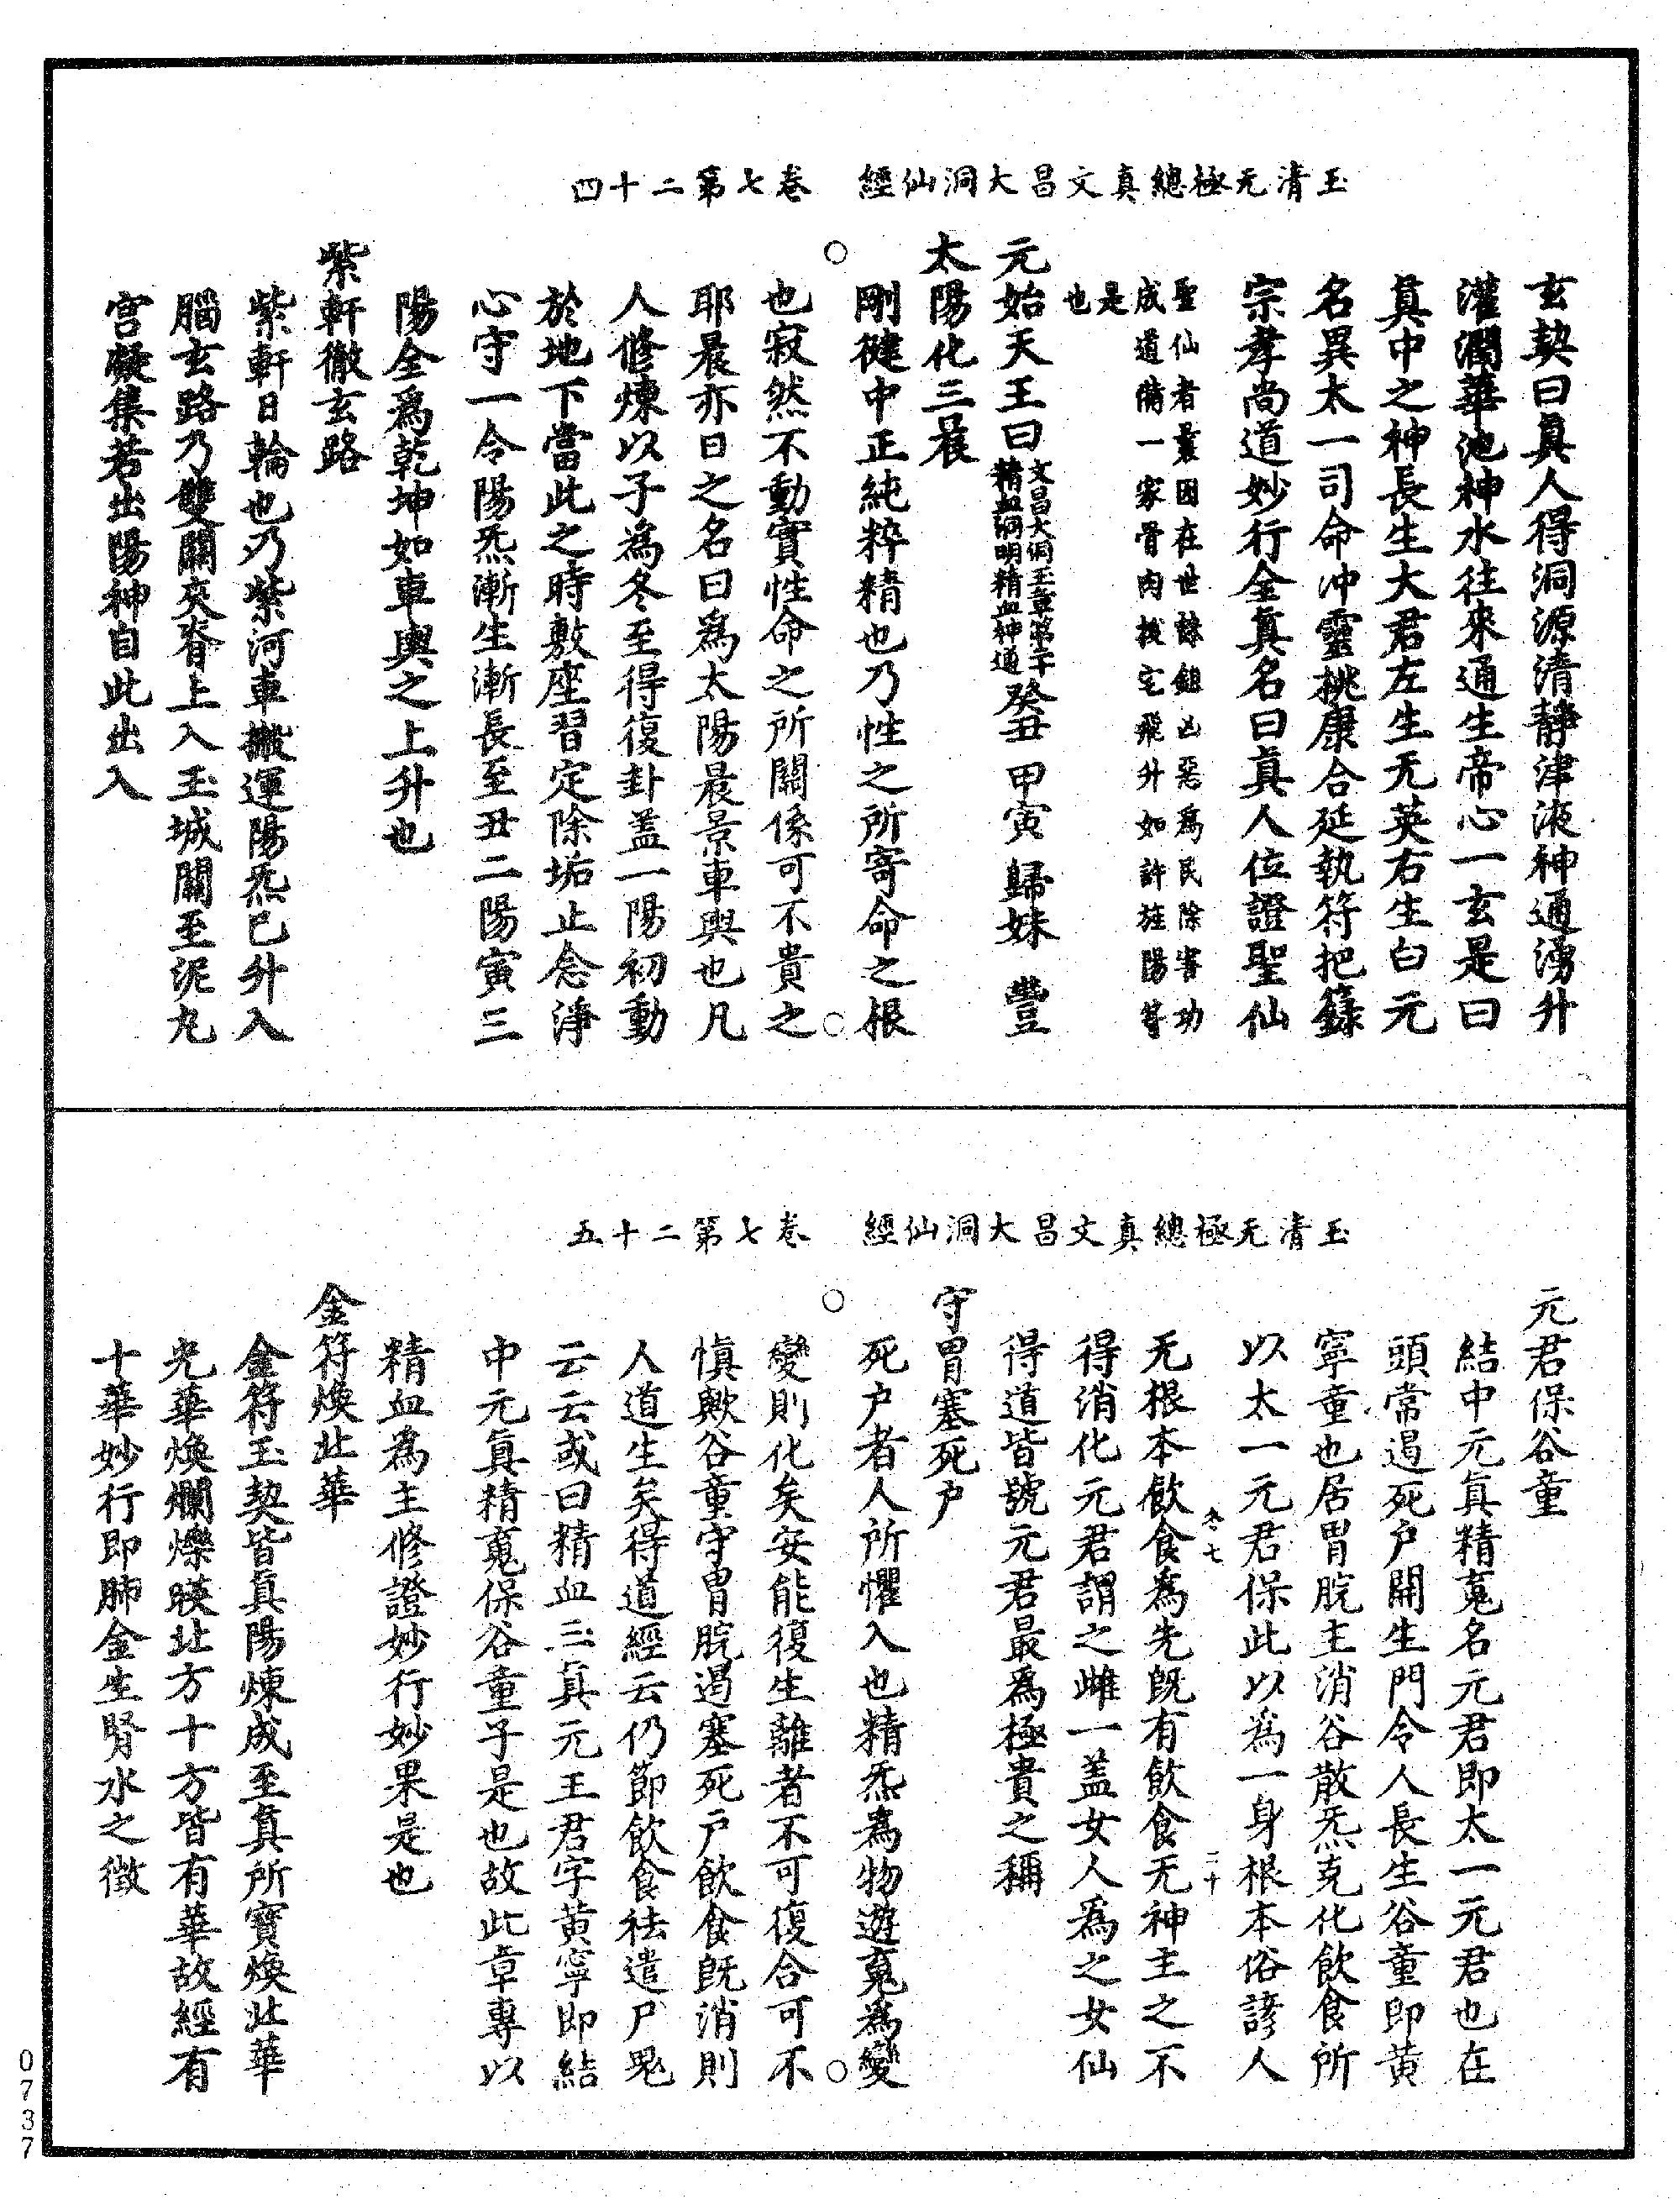 玉清无極總真文昌大洞仙經　卷七第二十四
玄契曰真人得洞源清靜津液神通湧升
灌溉華池神水往來通生帝心一玄是曰
真中之神長生大君左生无英右生白元
名異太一司命冲靈桃康合延執符把籙
宗孝尚道妙行全真名曰真人位證聖仙
聖仙者景因在世誅鉏凶惡爲民除害功
成道備一家骨肉拔宅飛升如許旌陽等
是
也
元始天王曰文昌大洞玉章第二十精血洞明精血神通癸丑甲寅歸妹豐
太陽化三晨
剛健中正純粹精也乃性之所寄命之根
也寂然不動實性命之所關係可不貴之
耶晨亦日之名曰爲太陽晨景車輿也凡
人修煉以子爲冬至得復卦盖一陽初動
於地下當此之時敷座習定除垢止念淨
心守一令陽炁漸生漸長至丑二陽寅三
陽全爲乾坤如車輿之上升也
紫軒徹玄路
紫軒日輪也乃紫河車搬運陽炁已升入
腦玄路乃雙關夾脊上入玉城關至泥丸
宮凝集若出陽神自此出入
玉清无極總真文昌大洞仙經　卷七第二十五
元君保谷童
結中元真精䰟名元君即太一元君也在
頭常遏死户開生門令人長生谷童即黄
寧童也居胃脘主消谷散炁克化飲食所
以太一元君保此以爲一身根本俗諺人
无根本飲食爲先既有飲食无神主之不
得消化元君謂之雌一盖女人爲之女仙
得道皆號元君最爲極貴之稱
守胃塞死户
死户者人所懼入也精炁爲物遊䰟爲變
變則化矣安能復生離者不可復合可不
慎歟谷童守胃脘遏塞死户飲食既消則
人道生矣得道經云仍節飲食祛遣尸鬼
云云或曰精血三真元王君字黄寧即結
中元真精䰟保谷童子是也故此章專以
精血爲主修證妙行妙果是也
金符煥北華
金符玉契皆真陽煉成至真所寶煥北華
光華煥爛爍暎北方十方皆有華故經有
十華妙行即肺金生腎水之徵
冬七
二十
0737